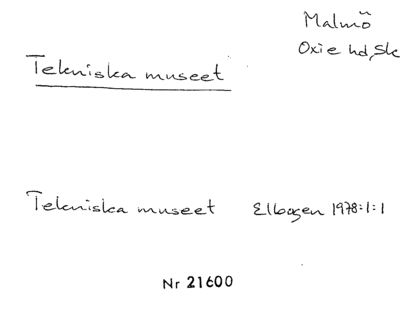 Malmö
Oxie hd, Sk
Tekniska museet
Tekniska museet Elbogen 1978:1:1
Nr 21600